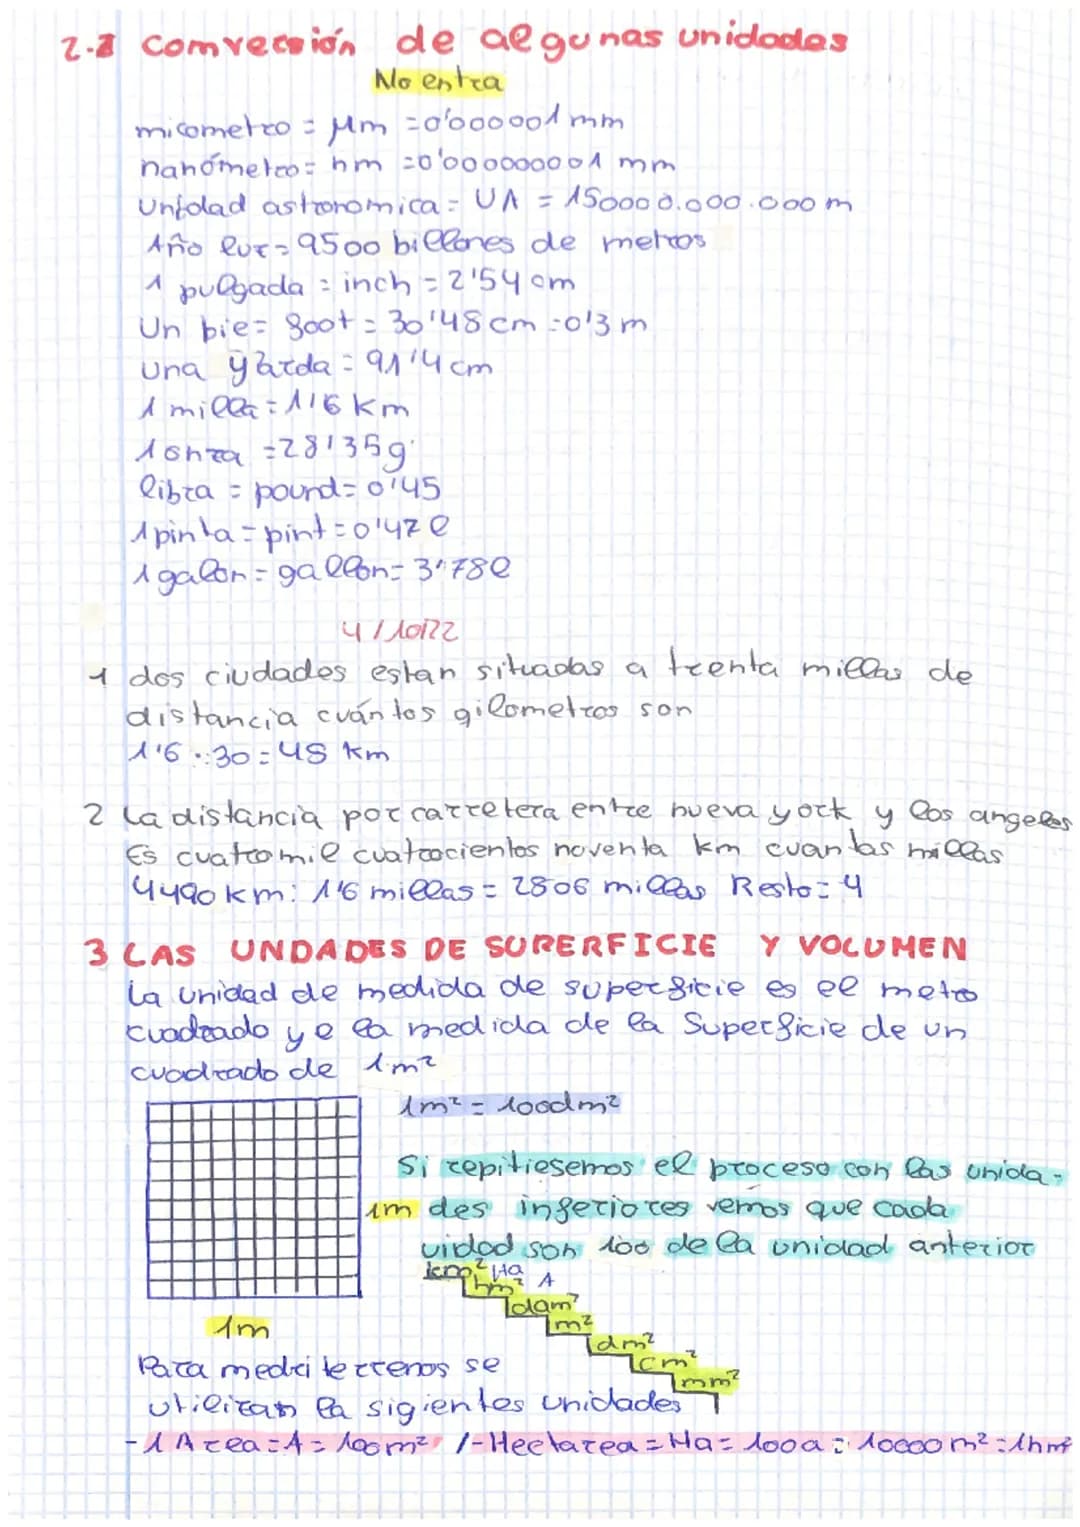 2.2 Comversión de algunas unidades
No entra
micometro = μm = 0'000001 mm
nanómetro = nm = 0'000000001 mm
Unidad astronomica = UA = 150000.000.000 m
Año luz = 9500 billones de metros
1 pulgada = inch = 2'54 cm
Un pie = foot = 30'48 cm = 0'3 m
una yarda = 91'4 cm
1 milla = 1'6 km
1 onza = 28'35g
libra = pound = 0'45
1 pinta = pint = 0'47 l
1 galon = gallon = 3'78 l
4/10/22
1 dos ciudades estan situadas a treinta millas de
distancia cuántos gilometros son
1'6 · 30 = 48 km
2 La distancia por carretera entre nueva york y los angeles
Es cuatro mil cuatrocientos noventa km cuantas millas
4490 km : 1'6 millas = 2806 millas Resto = 4
3 LAS UNDADES DE SUPERFICIE Y VOLUMEN
La unidad de medida de superficie es el metro
cuadrado y e la medida de la Superficie de un
cuadrado de 1 m²
1m² = 100dm²
Si repitiesemos el proceso con las unida-
1m des inferiores vemos que cada
uidad son 100 de la unidad anterior
km² Ha
hm² A
dam²
m²
1m
dm²
cm²
mm²
Para medri terrenos se
utilizan la sigientes unidades
- 1 Area = A = 100m² / - Hectarea = Ha = 100a = 10000 m² = 1hm²